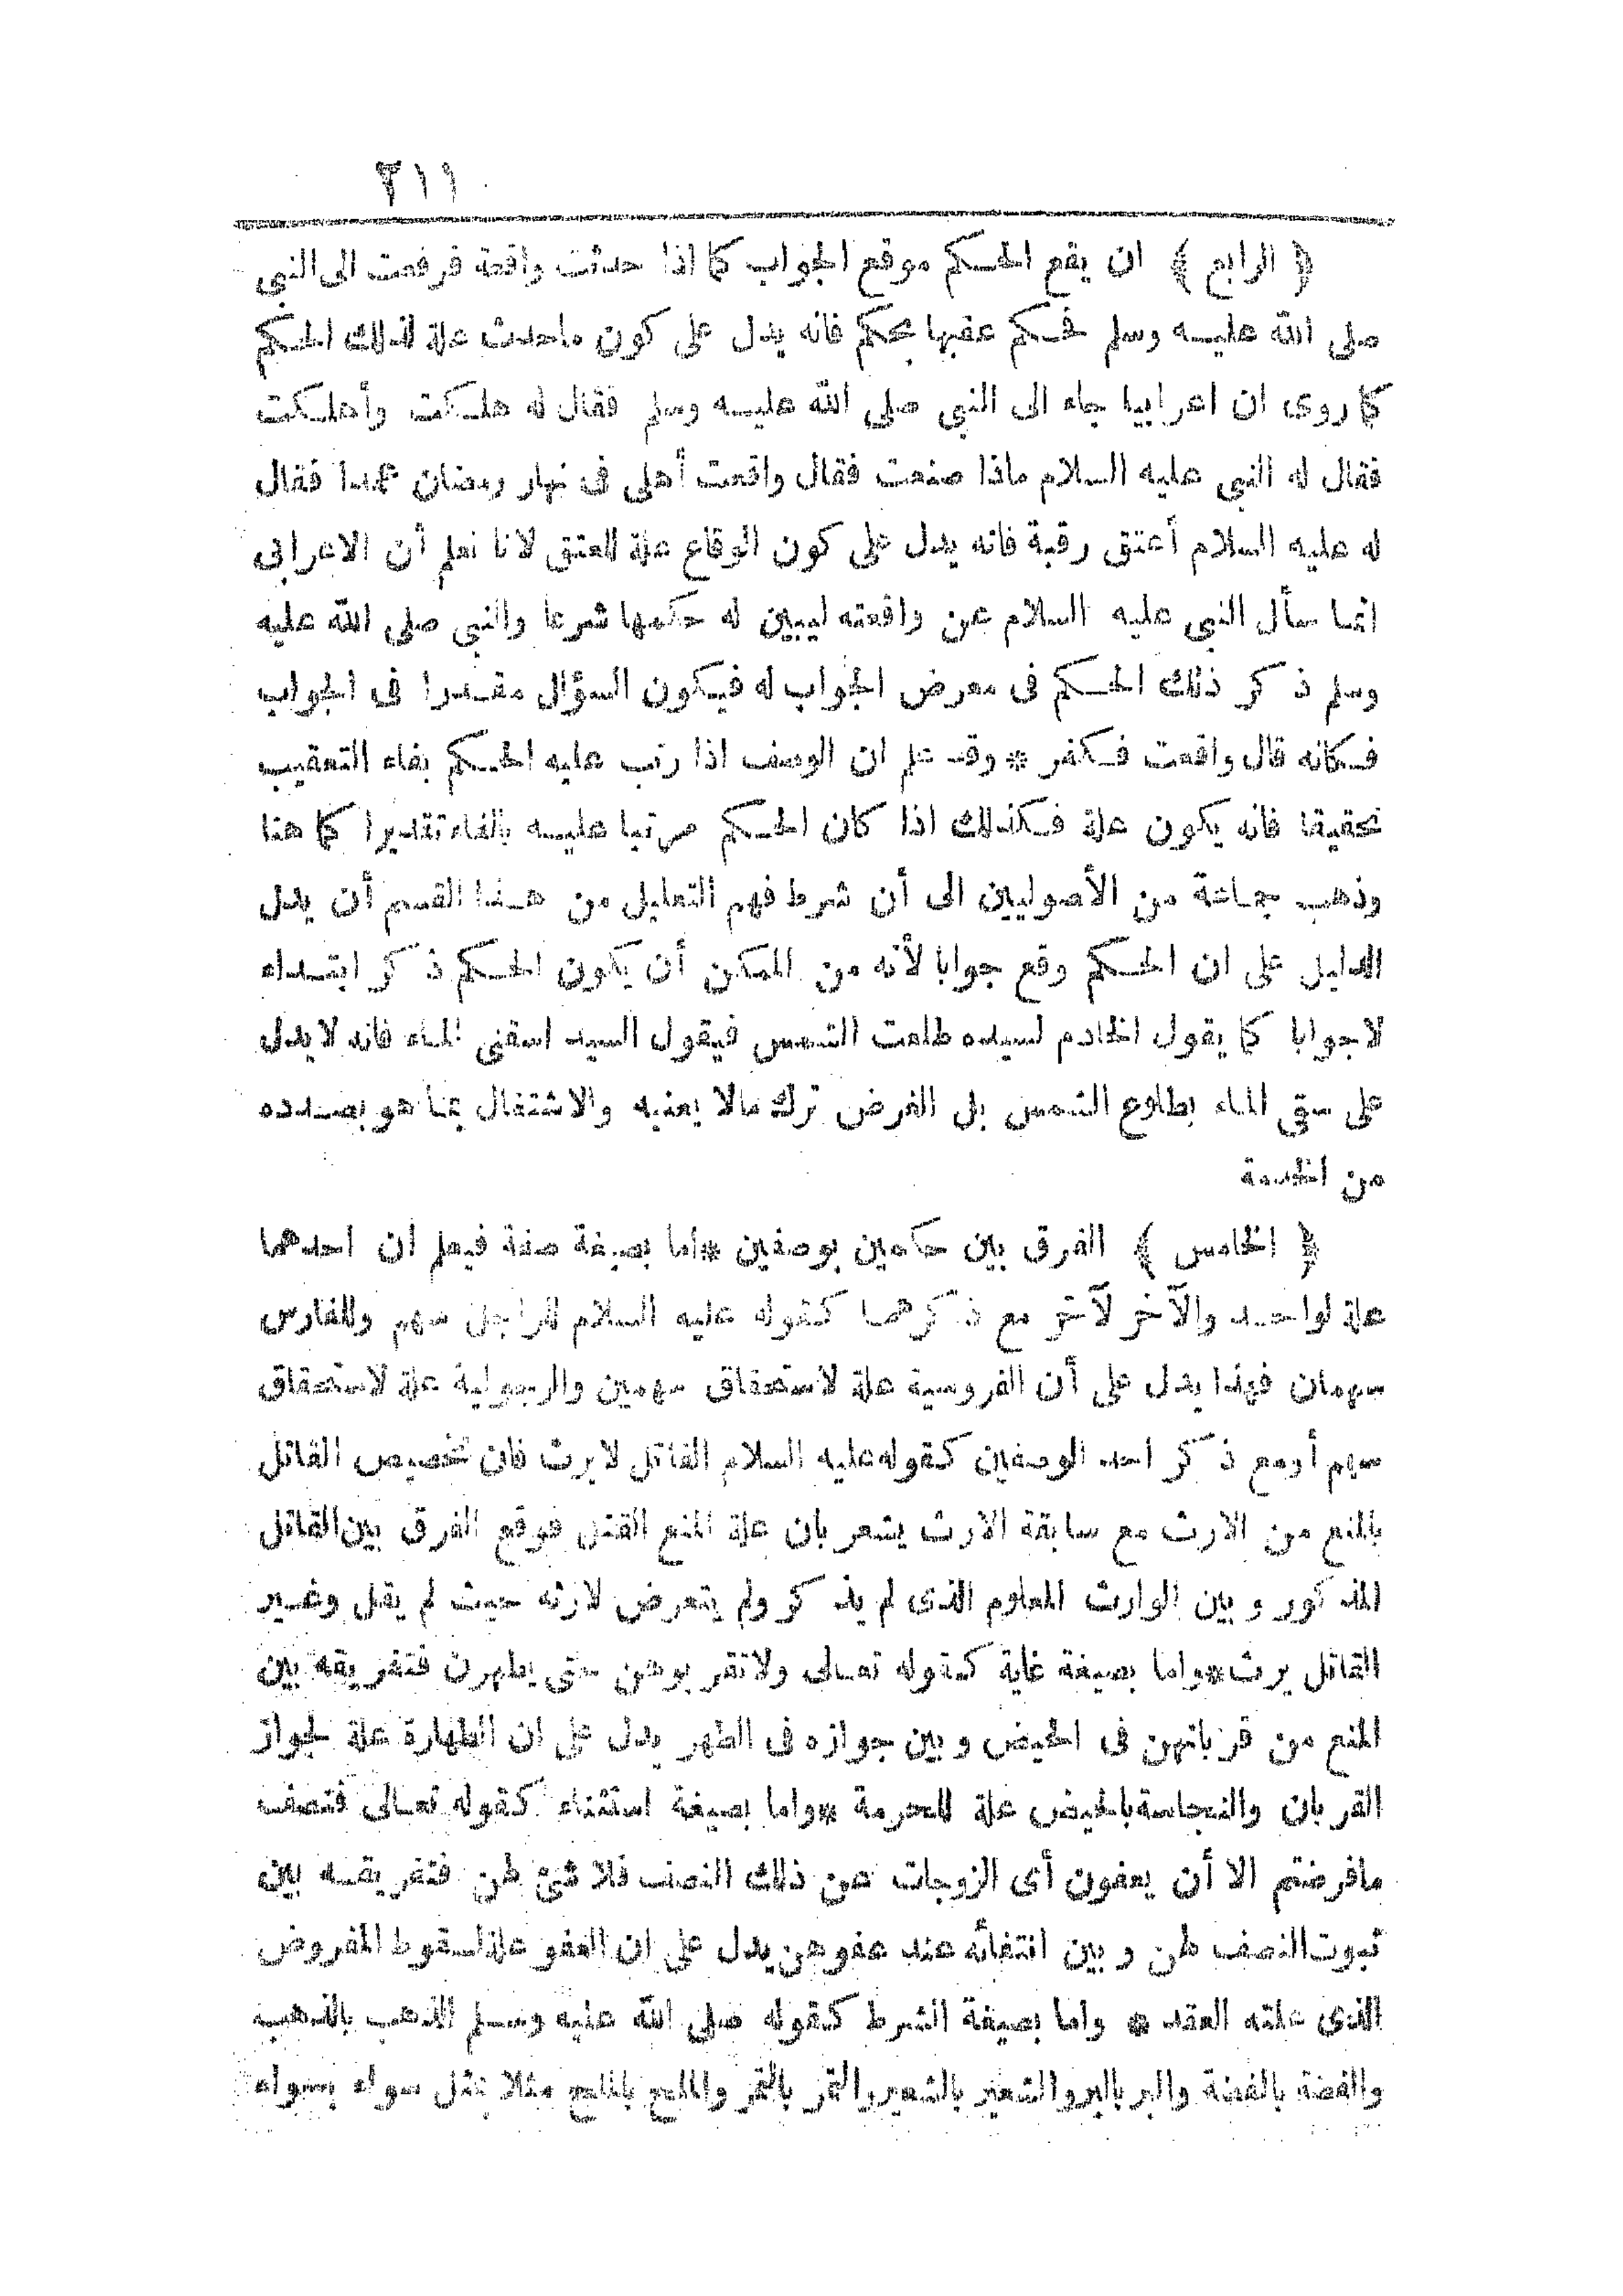 ٣١١
﴿ الرابع ﴾ ان يقع الحكم موقع الجواب كما اذا حدثت واقعة فرفعت الى النبى
صلى الله عليه وسلم فحكم عقبها بحكم فانه يدل على كون ماحدث علة لذلك الحكم
كما روى ان اعرابيا جاء الى النبى صلى الله عليه وسلم فقال له هلكت وأهلكت
فقال له النبى عليه السلام ماذا صنعت فقال واقعت أهلى فى نهار رمضان عمدا فقال
له عليه السلام أعتق رقبة فانه يدل على كون الوقاع علة للعتق لانا نعلم أن الاعرابى
انما سأل النبى عليه السلام عن واقعته ليبين له حكمها شرعا والنبى صلى الله عليه
وسلم ذكر ذلك الحكم فى معرض الجواب له فيكون السؤال مقدرا فى الجواب
فكانه قال واقعت فكفر * وقد علم ان الوصف اذا رتب عليه الحكم بفاء التعقيب
تحقيقا فانه يكون علة فكذلك اذا كان الحكم مرتبا عليه بالفاء تقديرا كما هنا
وذهب جماعة من الأصوليين الى أن شرط فهم التعليل من هذا القسم أن يدل
الدليل على ان الحكم وقع جوابا لأنه من الممكن أن يكون الحكم ذكر ابتداء
لاجوابا كما يقول الخادم لسيده طلعت الشمس فيقول السيد اسقنى الماء فانه لايدل
على سقى الماء بطلوع الشمس بل الغرض ترك مالا يعنيه والاشتغال بما هو بصدده
من الخدمة
﴿ الخامس ﴾ الفرق بين حكمين بوصفين *اما بصيغة صفة فيعلم ان احدهما
علة لواحد والآخر لآخر مع ذكرهما كقوله عليه السلام للراجل سهم وللفارس
سهمان فهذا يدل على أن الفروسية علة لاستحقاق سهمين والرجولية علة لاستحقاق
سهم أو مع ذكر احد الوصفين كقوله عليه السلام القاتل لايرث فان تخصيص القاتل
بالمنع من الارث مع سابقة الارث يشعر بان علة المنع القتل فوقع الفرق بين القاتل
المذكور و بين الوارث المعلوم الذى لم يذكر ولم يتعرض لارثه حيث لم يقل وغير
القاتل يرث*واما بصيغة غاية كقوله تعالى ولاتقربوهن حتى يطهرن فتفريقه بين
المنع من قربانهن فى الحيض و بين جوازه فى الطهر يدل على ان الطهارة علة لجواز
القربان والنجاسة بالحيض علة للحرمة *واما بصيغة استثناء كقوله تعالى فنصف
مافرضتم الا أن يعفون أى الزوجات عن ذلك النصف فلا شئ لهن فتفريقه بين
ثبوت النصف لهن و بين انتفائه عند عفوهن يدل على ان العفو علة لسقوط المفروض
الذى علته العقد * واما بصيغة الشرط كقوله صلى الله عليه وسلم الذهب بالذهب
والفضة بالفضة والبر بالبر والشعير بالشعير والتمر بالتمر والملح بالملح مثلا بمثل سواء بسواء